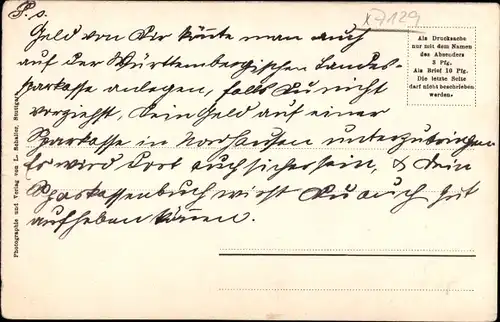 P. S.
x7129
Geld von Dir könnte man auch
auf der Württembergischen Landes-
sparkasse anlegen, falls Du nicht
vorziehst, Dein Geld auf einer
Sparkasse in Nordhausen unterzubringen
Es wird dort auch sicher sein, & Dein
Sparkassenbuch wirst Du auch gut
aufheben können.
Als Drucksache
nur mit dem Namen
des Absenders
3 Pfg.
Als Brief 10 Pfg.
Die letzte Seite
darf nicht beschrieben
werden.
Photographie und Verlag von L. Schaller, Stuttgart